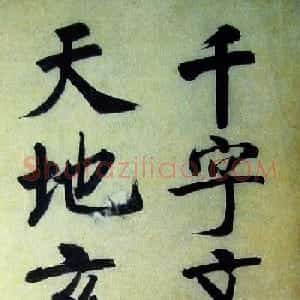 千字文
天地玄
Shufaziliao.COM